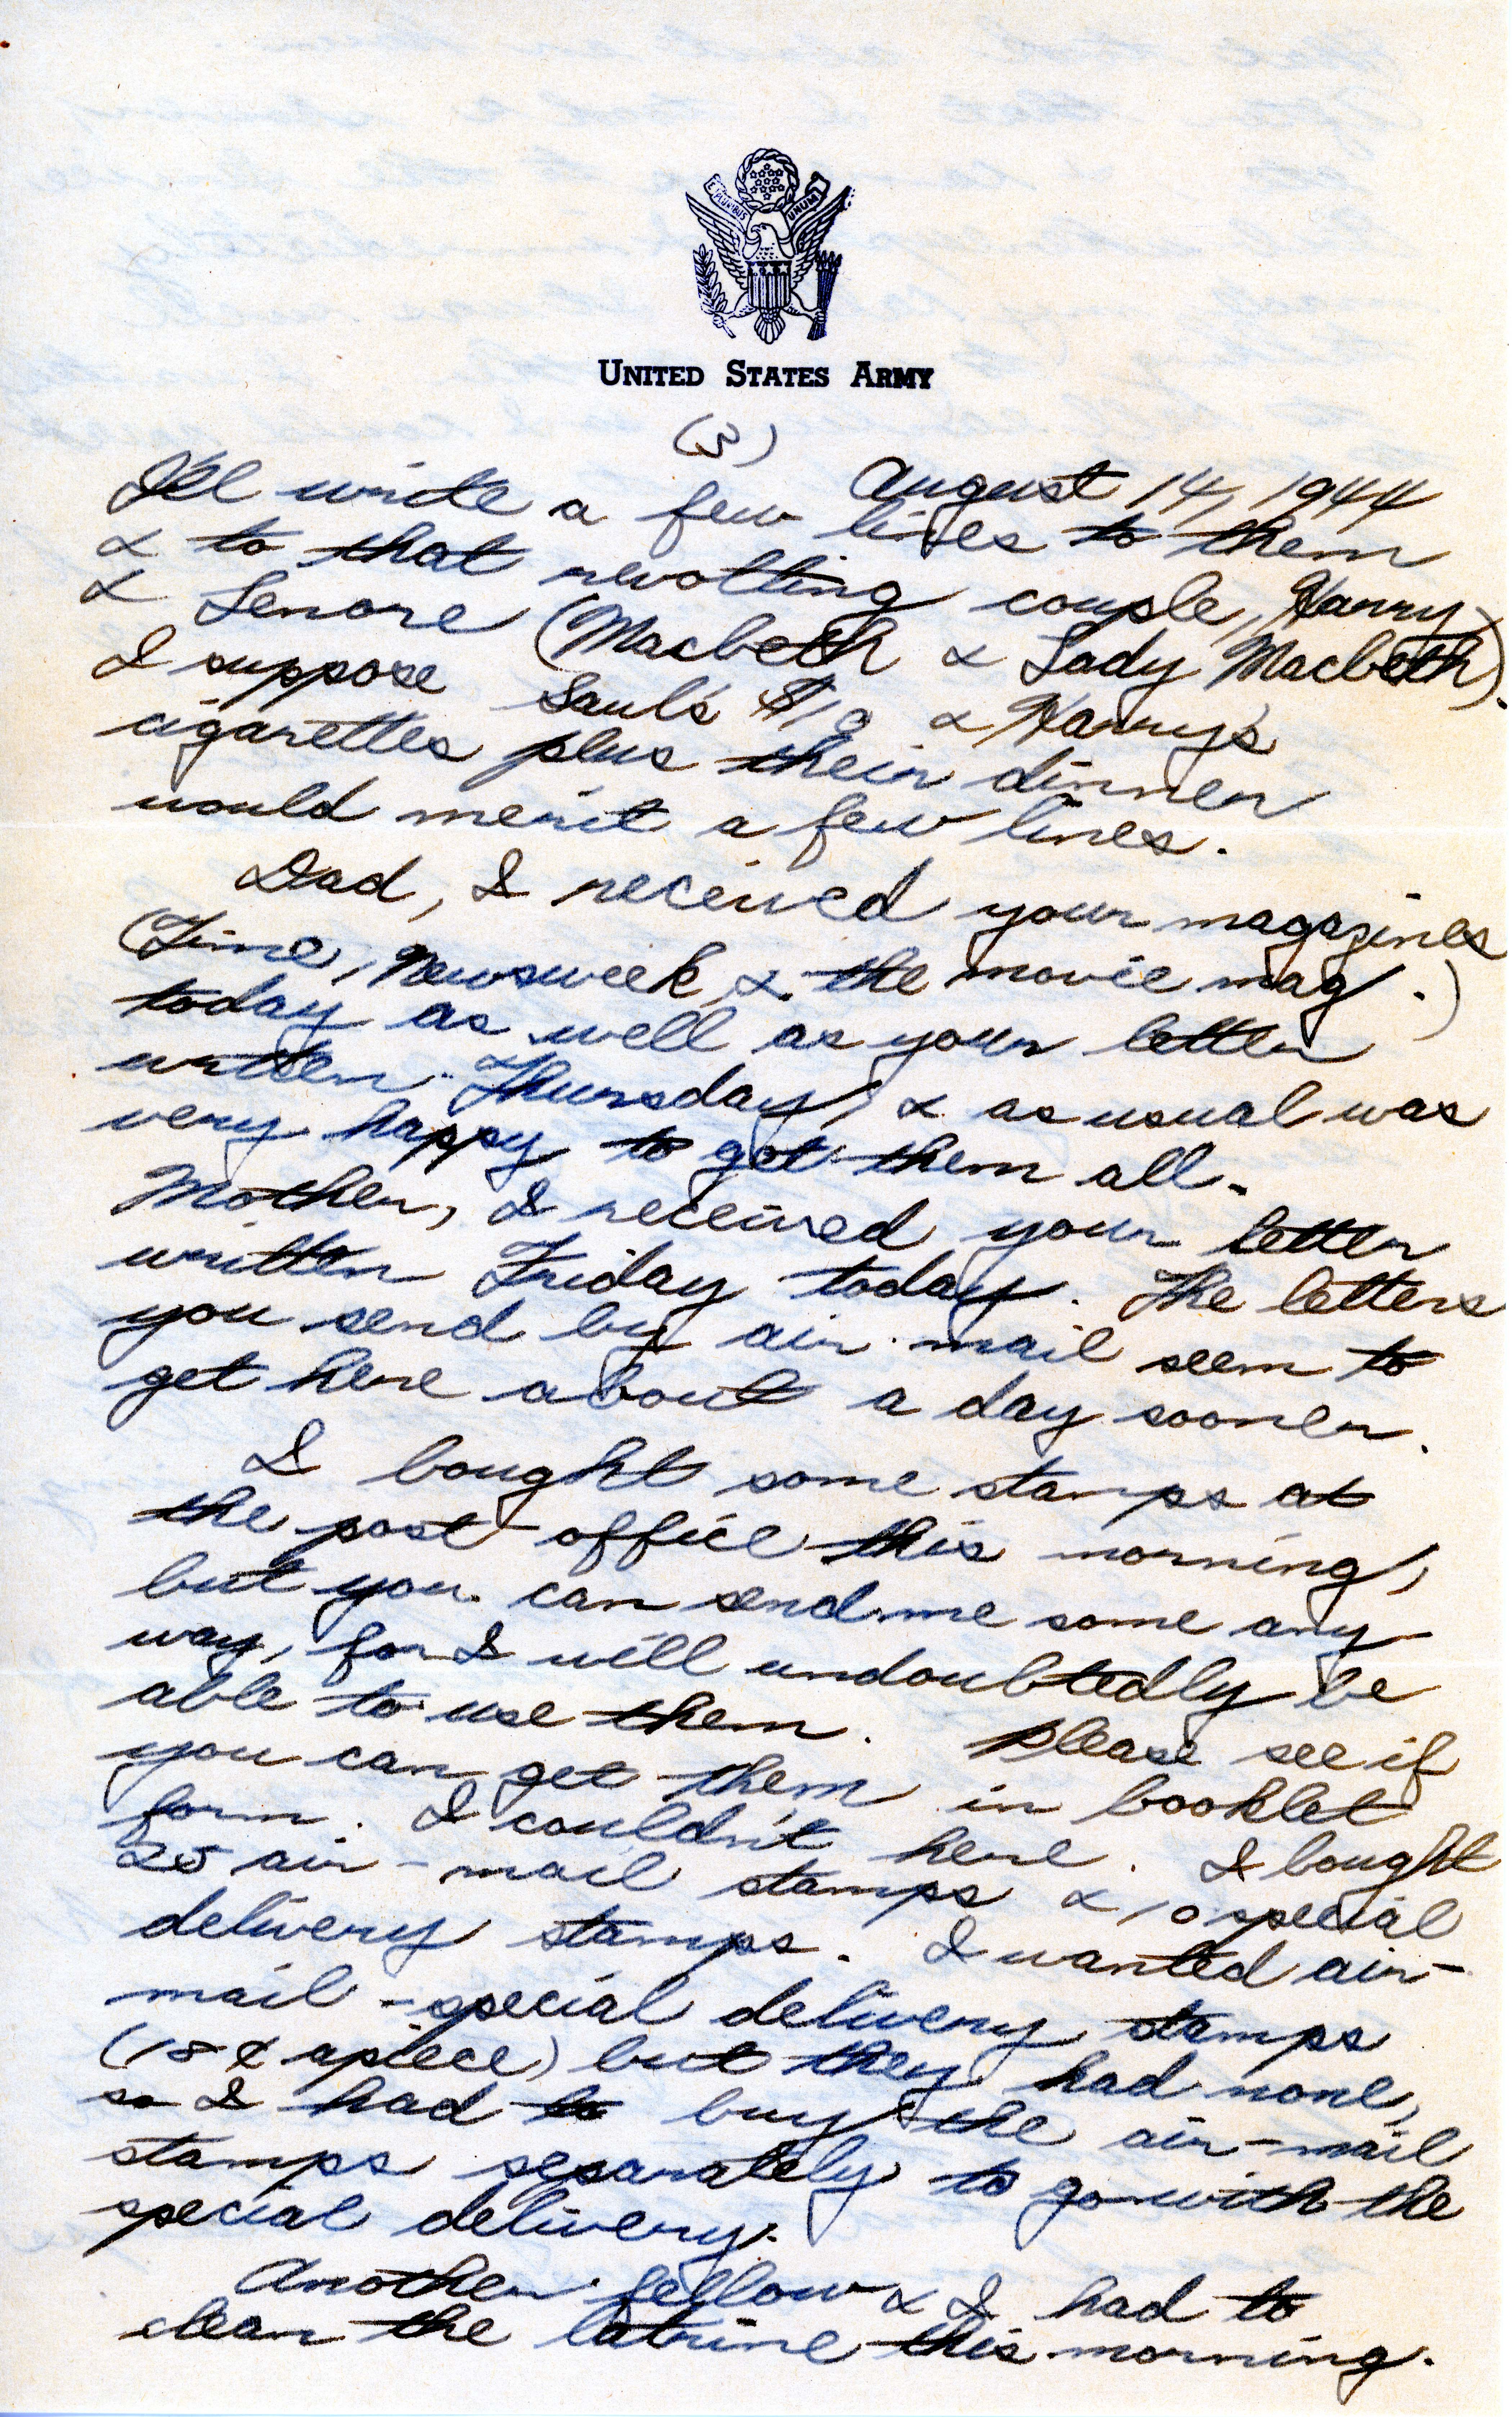 E PLURIBUS UNUM
UNITED STATES ARMY
(3)
August 14, 1944
I'll write a few lines to them
& to that revolting couple, Harry
& Lenore (Macbeth & Lady Macbeth).
I suppose Saul's $10 & Harry's
cigarettes plus their dinner
would merit a few lines.
Dad, I received your magazines
(Time, Newsweek, & the movie mag.)
today as well as your letter
written Thursday, & as usual was
very happy to get them all.
Mother, I received your letter
written Friday today. The letters
you send by air mail seem to
get here about a day sooner.
I bought some stamps at
the post-office this morning,
but you can send me some any-
way, for I will undoubtedly be
able to use them. Please see if
you can get them in booklet
form. I couldn't here. I bought
25 air-mail stamps & 10 special
delivery stamps. I wanted air-
mail-special delivery stamps
(18¢ apiece) but they had none,
so I had to buy the air-mail
stamps separately to go with the
special delivery.
Another fellow & I had to
clean the latrine this morning.